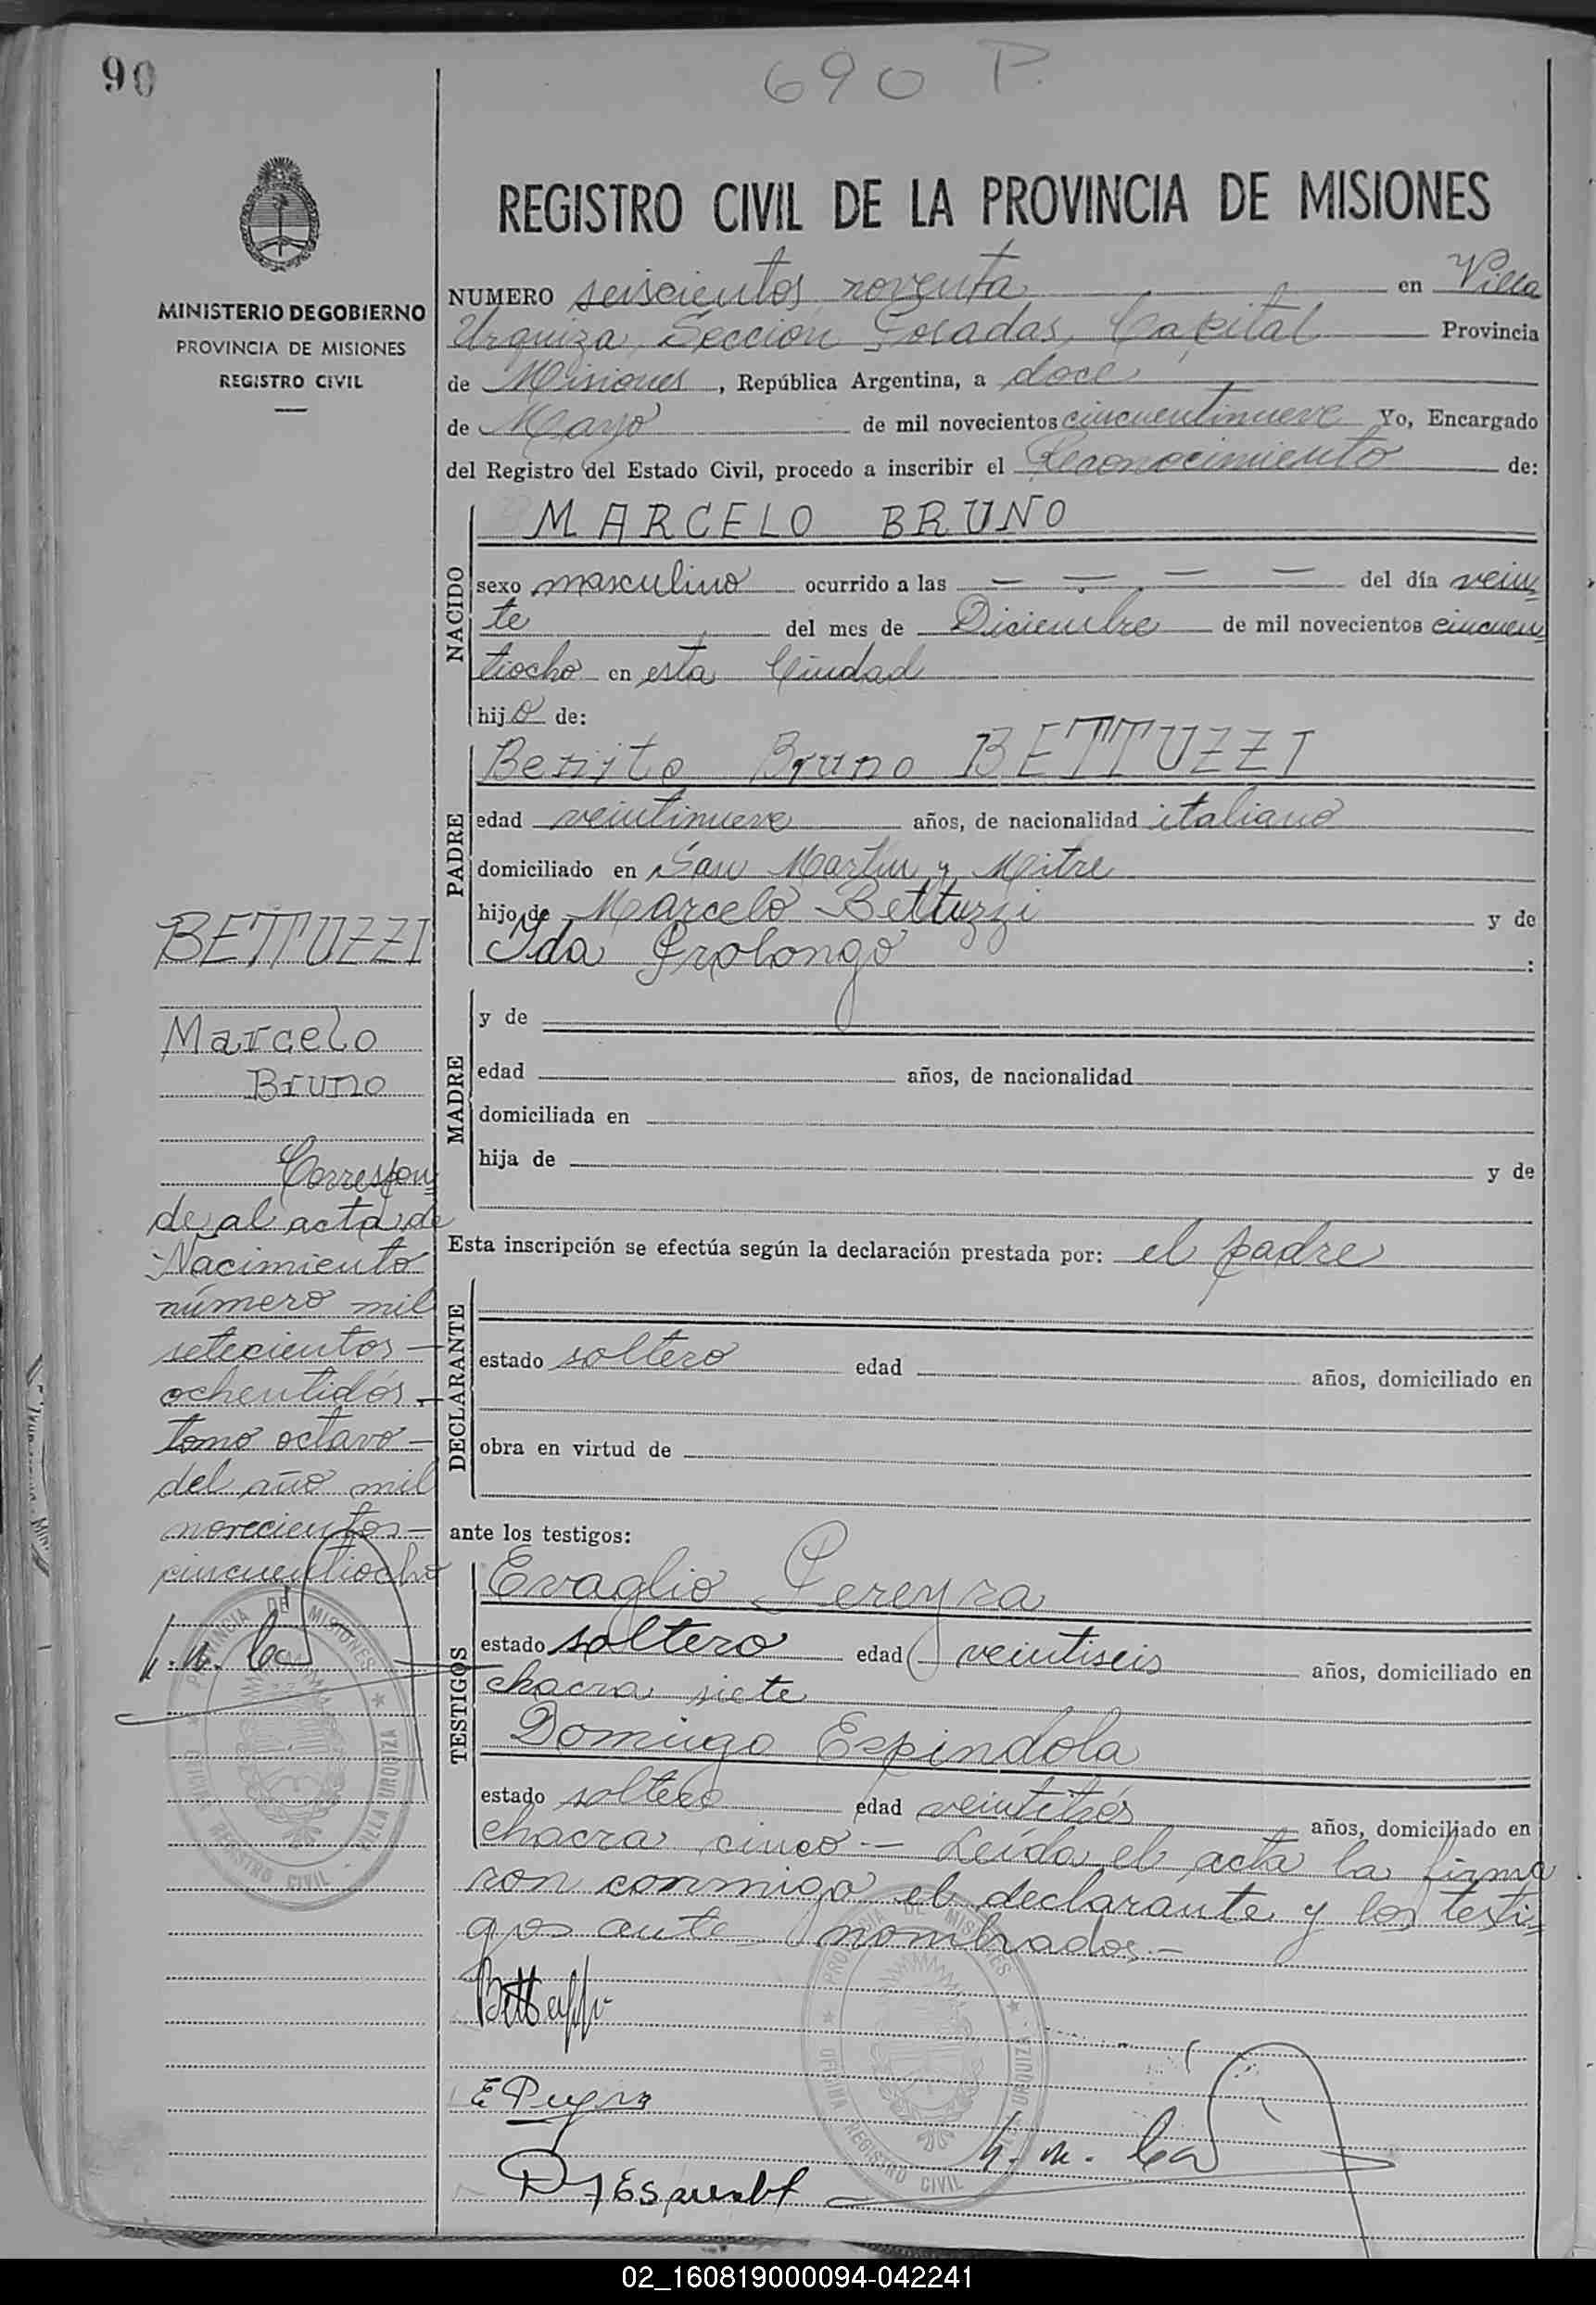 90
690 P.
MINISTERIO DE GOBIERNO
PROVINCIA DE MISIONES
REGISTRO CIVIL
REGISTRO CIVIL DE LA PROVINCIA DE MISIONES
NUMERO seiscientos noventa en Villa
Urquiza Sección Posadas, Capital Provincia
de Misiones, República Argentina, a doce
de Mayo de mil novecientos cincuentinueve Yo, Encargado
del Registro del Estado Civil, procedo a inscribir el Reconocimiento de:
NACIDO
MARCELO BRUNO
sexo masculino ocurrido a las — — — — del día vein=
te del mes de Diciembre de mil novecientos cincuen=
tiocho en esta Ciudad
hijo de:
PADRE
Benito Bruno BETTUZZI
edad veintinueve años, de nacionalidad italiano
domiciliado en San Martin y Mitre
hijo de Marcelo Bettuzzi y de
Ida Prolongo :
MADRE
y de
edad años, de nacionalidad
domiciliada en
hija de y de
Esta inscripción se efectúa según la declaración prestada por: el padre
DECLARANTE
estado soltero edad años, domiciliado en
obra en virtud de
ante los testigos:
TESTIGOS
Evaglio Pereyra
estado soltero edad veintiseis años, domiciliado en
chacra siete
Domingo Espindola
estado soltero edad veintitrés años, domiciliado en
chacra cinco — Leída el acta la firma
ron conmigo el declarante y los testi=
gos ante nombrados.—
BETTUZZI
Marcelo
Bruno
Correspon=
de al acta de
Nacimiento
número mil
setecientos —
ochentidós.—
tomo octavo —
del año mil
novecientos —
cincuentiocho
PROVINCIA DE MISIONES
OFICINA REGISTRO CIVIL - VILLA URQUIZA
PROVINCIA DE MISIONES
OFICINA REGISTRO CIVIL - VILLA URQUIZA
02_160819000094-042241